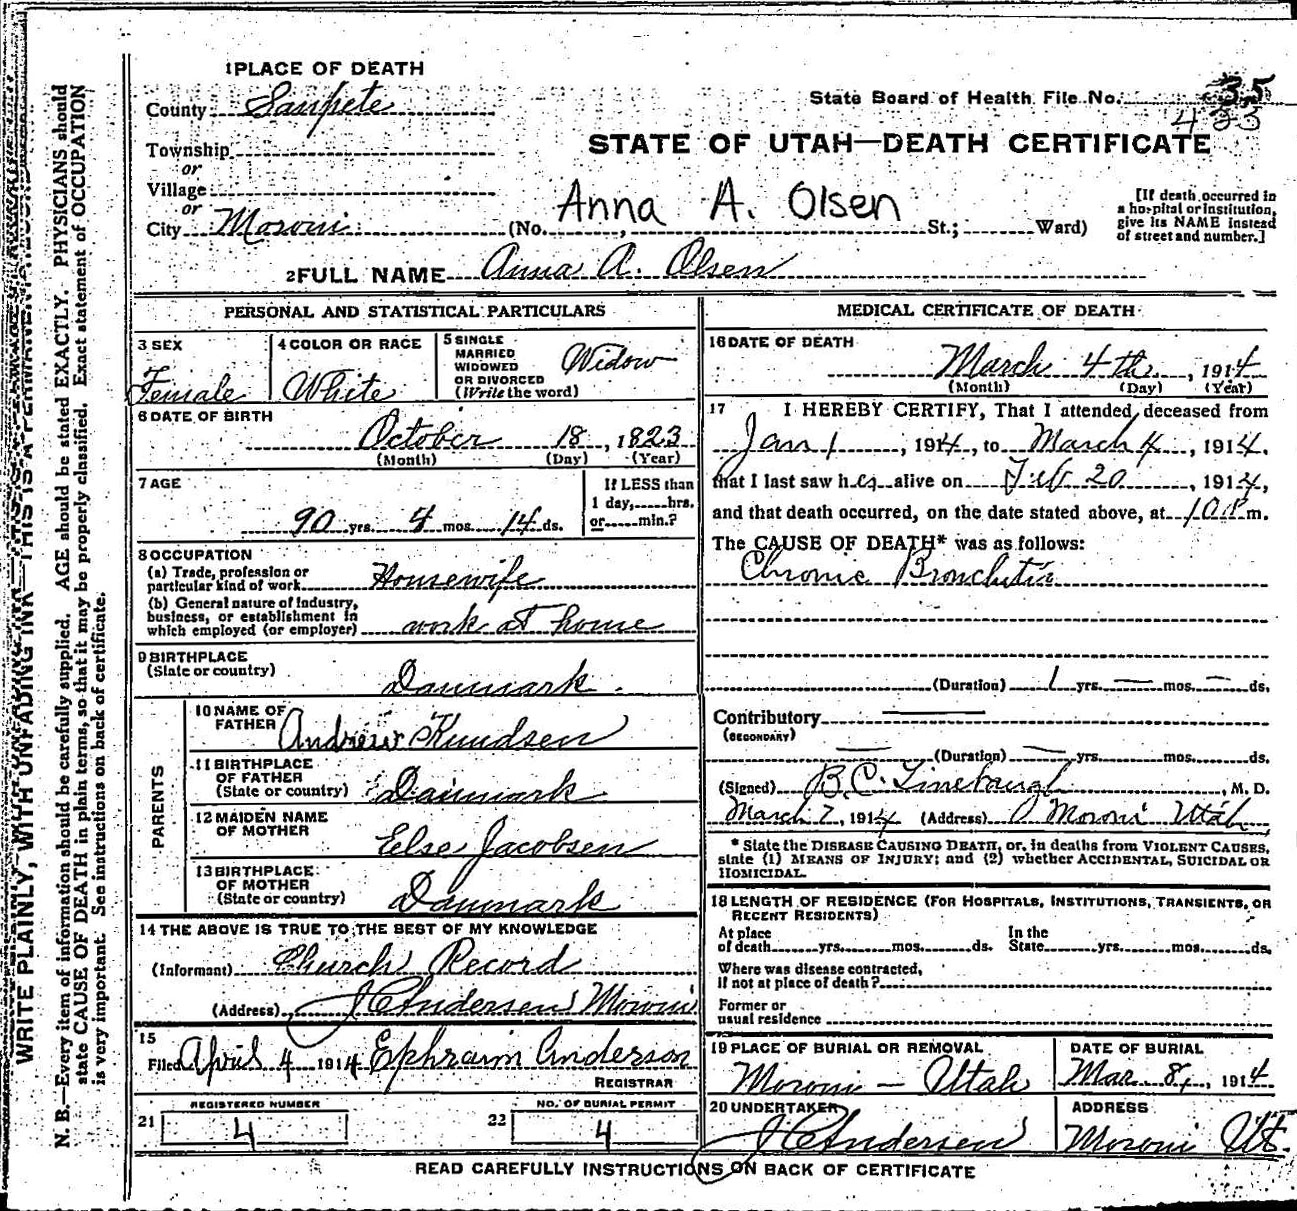 WRITE PLAINLY, WITH UNFADING INK—THIS IS A PERMANENT RECORD
N. B.—Every item of information should be carefully supplied. AGE should be stated EXACTLY. PHYSICIANS should
state CAUSE OF DEATH in plain terms, so that it may be properly classified. Exact statement of OCCUPATION
is very important. See instructions on back of certificate.
1 PLACE OF DEATH
County Sanpete
State Board of Health File No. 35
423
Township
or
Village
or
City Moroni
STATE OF UTAH—DEATH CERTIFICATE
Anna A. Olsen
(No. , St.; Ward)
[If death occurred in
a hospital or institution,
give its NAME instead
of street and number.]
2 FULL NAME Anna A. Olsen
PERSONAL AND STATISTICAL PARTICULARS
3 SEX
Female
4 COLOR OR RACE
White
5 SINGLE
MARRIED
WIDOWED
OR DIVORCED
(Write the word)
Widow
6 DATE OF BIRTH
October 18, 1823
(Month) (Day) (Year)
7 AGE
90 yrs. 4 mos. 14 ds.
If LESS than
1 day, hrs.
or min.?
8 OCCUPATION
(a) Trade, profession or
particular kind of work Housewife
(b) General nature of industry,
business, or establishment in
which employed (or employer) work at home
9 BIRTHPLACE
(State or country)
Danmark
PARENTS
10 NAME OF
FATHER Andrew Knudsen
11 BIRTHPLACE
OF FATHER
(State or country) Danmark
12 MAIDEN NAME
OF MOTHER
Else Jacobsen
13 BIRTHPLACE
OF MOTHER
(State or country) Danmark
14 THE ABOVE IS TRUE TO THE BEST OF MY KNOWLEDGE
(Informant) Church Record
(Address) J C Andersen Moroni
15
Filed April 4 1914 Ephraim Anderson
REGISTRAR
21 REGISTERED NUMBER
4
22 NO. OF BURIAL PERMIT
4
MEDICAL CERTIFICATE OF DEATH
16 DATE OF DEATH
March 4th, 1914
(Month) (Day) (Year)
17 I HEREBY CERTIFY, That I attended deceased from
Jan 1, 1914, to March 4, 1914,
that I last saw her alive on Feb 20, 1914,
and that death occurred, on the date stated above, at 10 P m.
The CAUSE OF DEATH* was as follows:
Chronic Bronchitis
(Duration) 1 yrs. — mos. — ds.
Contributory —
(SECONDARY)
— (Duration) — yrs. mos. ds.
(Signed) B.C. Linebaugh, M. D.
March 7, 1914 (Address) Moroni Utah
* State the DISEASE CAUSING DEATH, or, in deaths from VIOLENT CAUSES,
state (1) MEANS OF INJURY; and (2) whether ACCIDENTAL, SUICIDAL OR
HOMICIDAL.
18 LENGTH OF RESIDENCE (FOR HOSPITALS, INSTITUTIONS, TRANSIENTS, OR
RECENT RESIDENTS)
At place
of death yrs. mos. ds.
In the
State yrs. mos. ds.
Where was disease contracted,
If not at place of death?
Former or
usual residence
19 PLACE OF BURIAL OR REMOVAL
Moroni — Utah
DATE OF BURIAL
Mar 8, 1914
20 UNDERTAKER
J C Andersen
ADDRESS
Moroni Ut.
READ CAREFULLY INSTRUCTIONS ON BACK OF CERTIFICATE